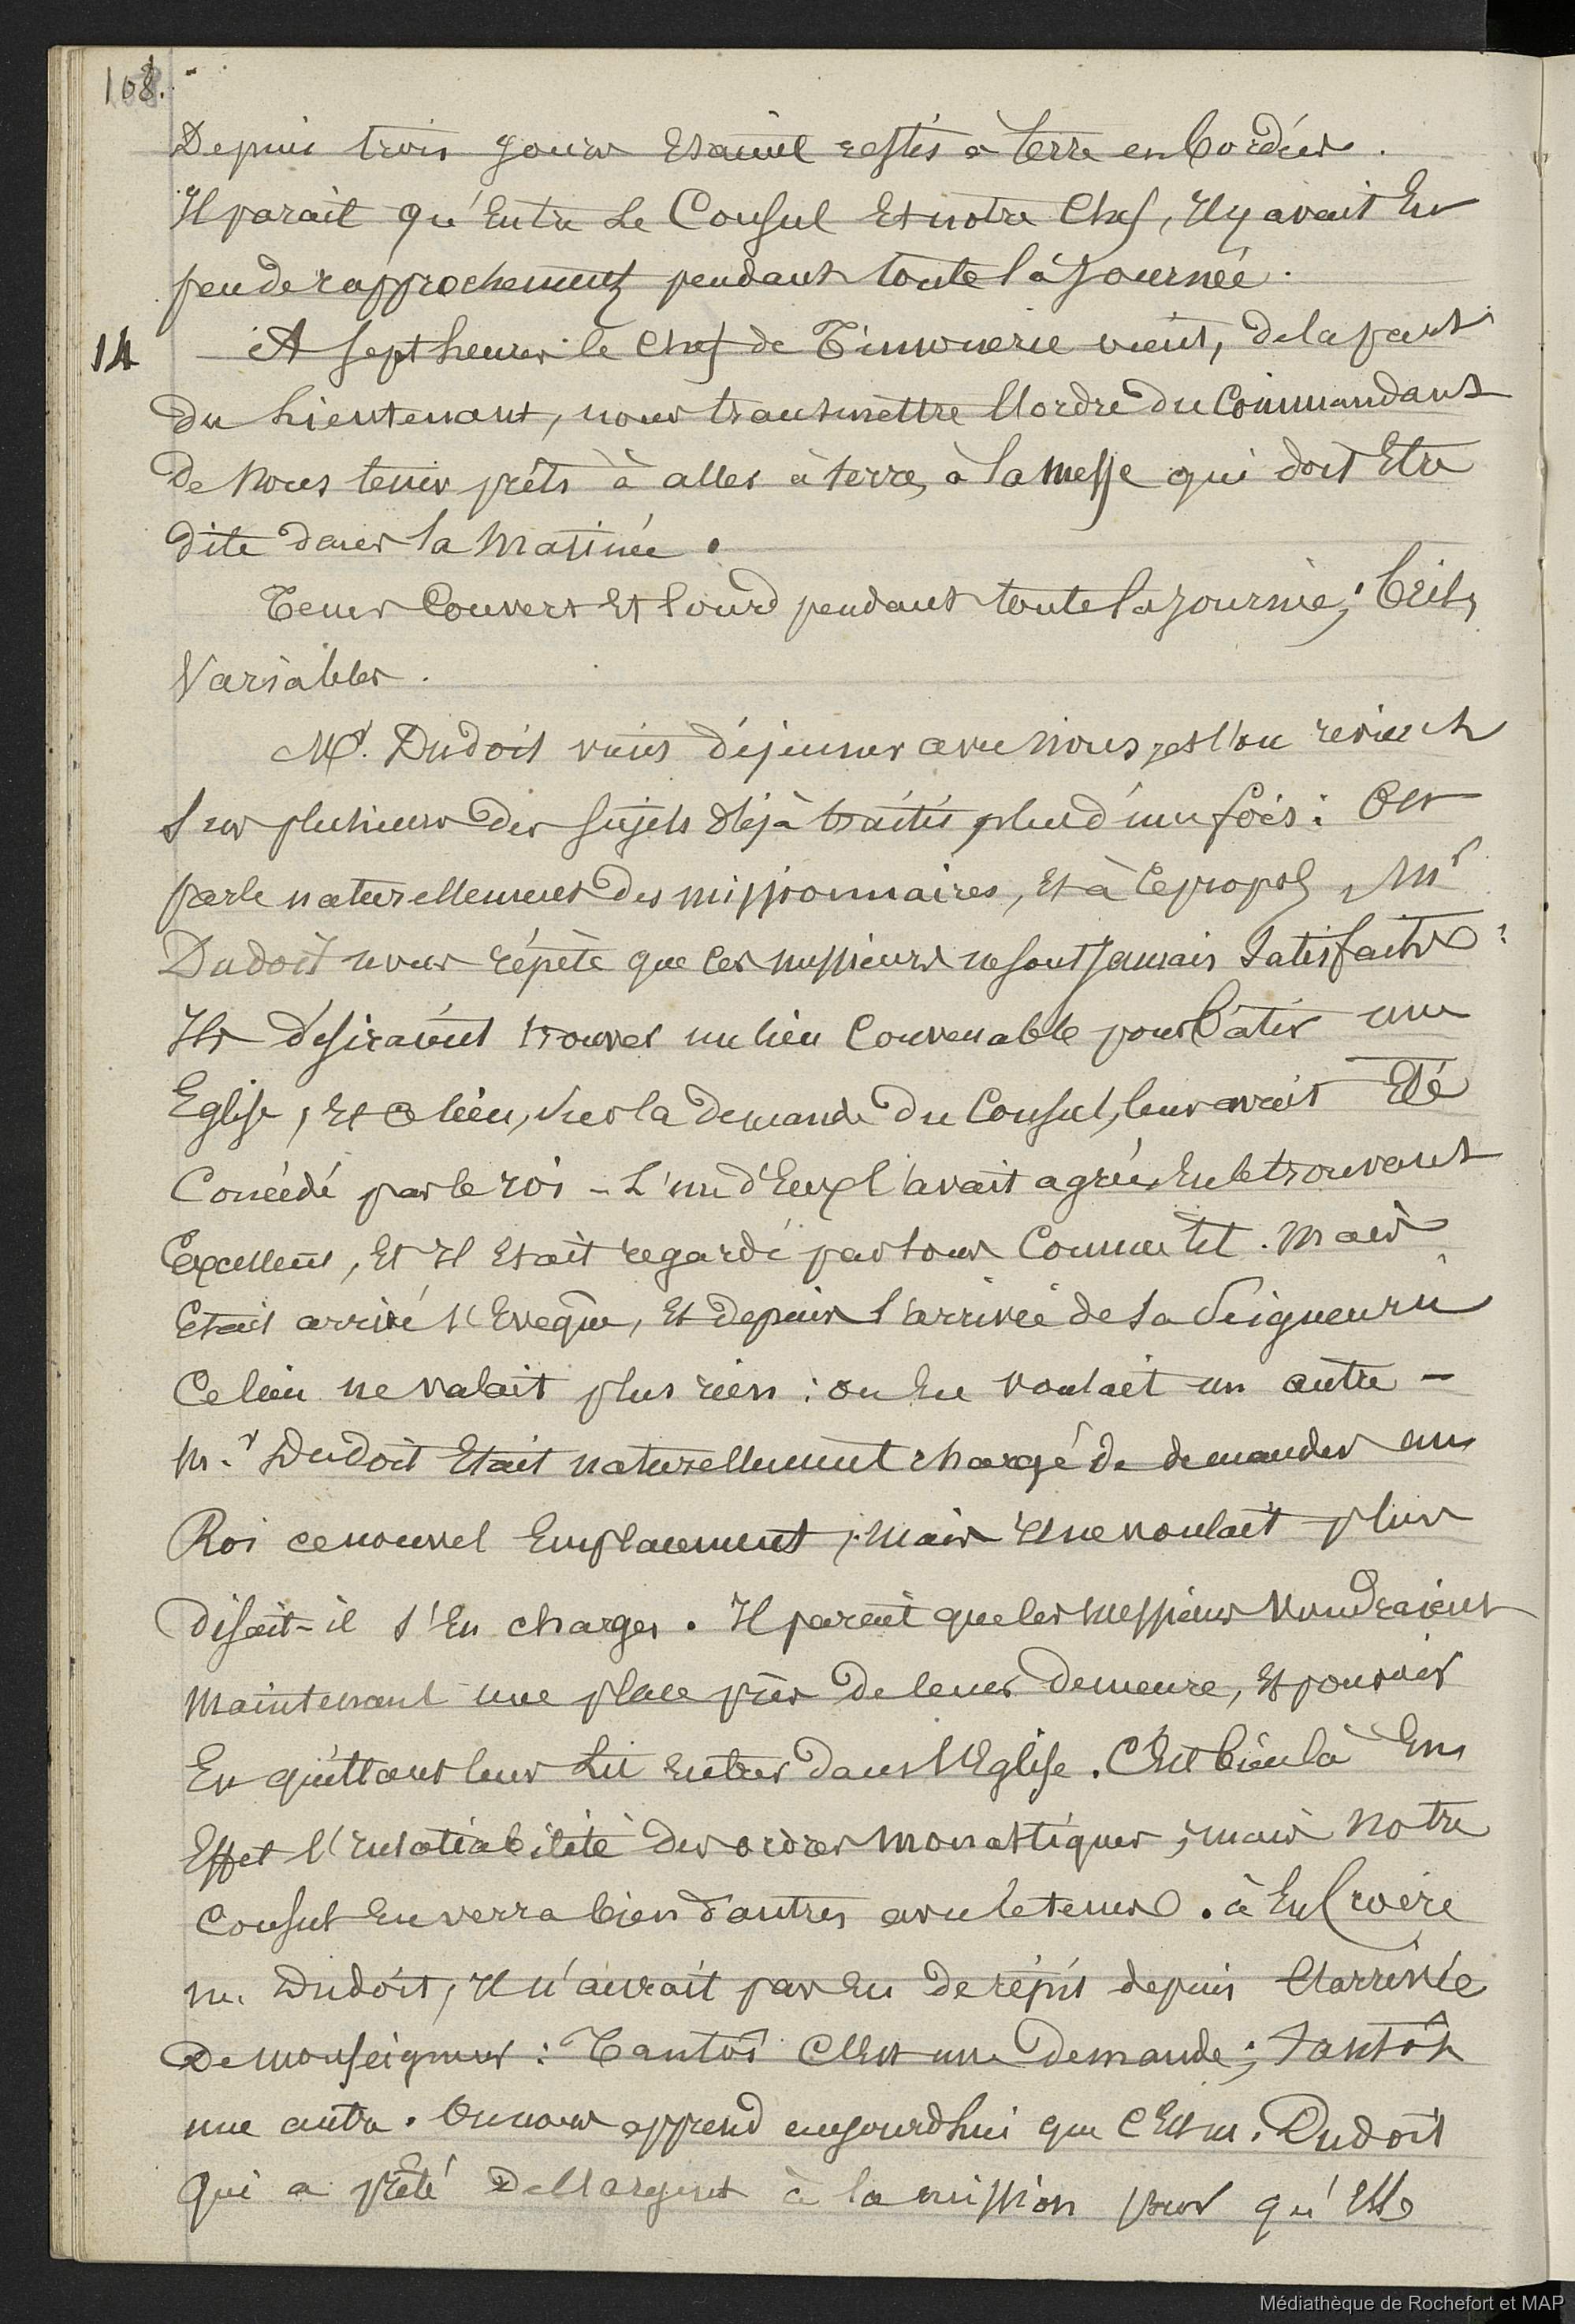 108.
Depuis trois jours etaient restés à terre en bordées.
Il parait qu'Entre Le Consul Et notre Chef, Il y avait Eu
peu de rapprochement pendant toute la Journée.
14 A sept heures le Chef de Timonerie vient, de la part
du Lieutenant, nous transmettre l'ordre du Commandant
de Nous tenir prêts à aller à terre, à la messe qui doit Etre
dite dans la Matinée.
Tems Couvert Et lourd pendant toute la journée;
Variables.
Mr. Dudoit vient déjeuner avec nous, et l'on revient
Sur plusieurs des sujets déjà traités plus d'une fois: On
parle naturellement des missionnaires, Et à Ce propos, Mr
Dudoit nous répète que Ces messieurs ne sont Jamais Satisfaits:
Ils desiraient trouver un lieu Convenable pour bâtir une
Eglise, Et Ce lieu, Sur la demande du Consul, leur avait Eté
Concédé par le roi - L'un d'Eux l'avait agréé En le trouvant
Excellent, Et Il Etait regardé par tous Comme tel. Mais
Etait arrivé l'Eveque, Et depuis l'arrivée de Sa Seigneurie
Ce lieu ne valait plus rien: on En voulait un autre -
Mr. Dudoit Etait naturellement chargé de demander au
Roi ce nouvel Emplacement; mais Il ne voulait plus
disait-il s'En charger. Il parait que les messieurs voudraient
maintenant une place près de leur demeure, Et pouvoir
En quittant leur Lit entrer dans l'Eglise. C'Est bien là En
Effet l'Insatiabilité des ordres monastiques; mais notre
Consul En verra bien d'autres avec le tems. à En Croire
m. Dudoit, Il n'aurait pas Eu de répit depuis l'arrivée
De monseigneur: Tantôt C'Est une Demande; tantôt
une autre. On nous apprend aujourdhui que C'Est m. Dudoit
Qui a prêté De l'argent à la mission pour qu'Elle
Médiathèque de Rochefort et MAP